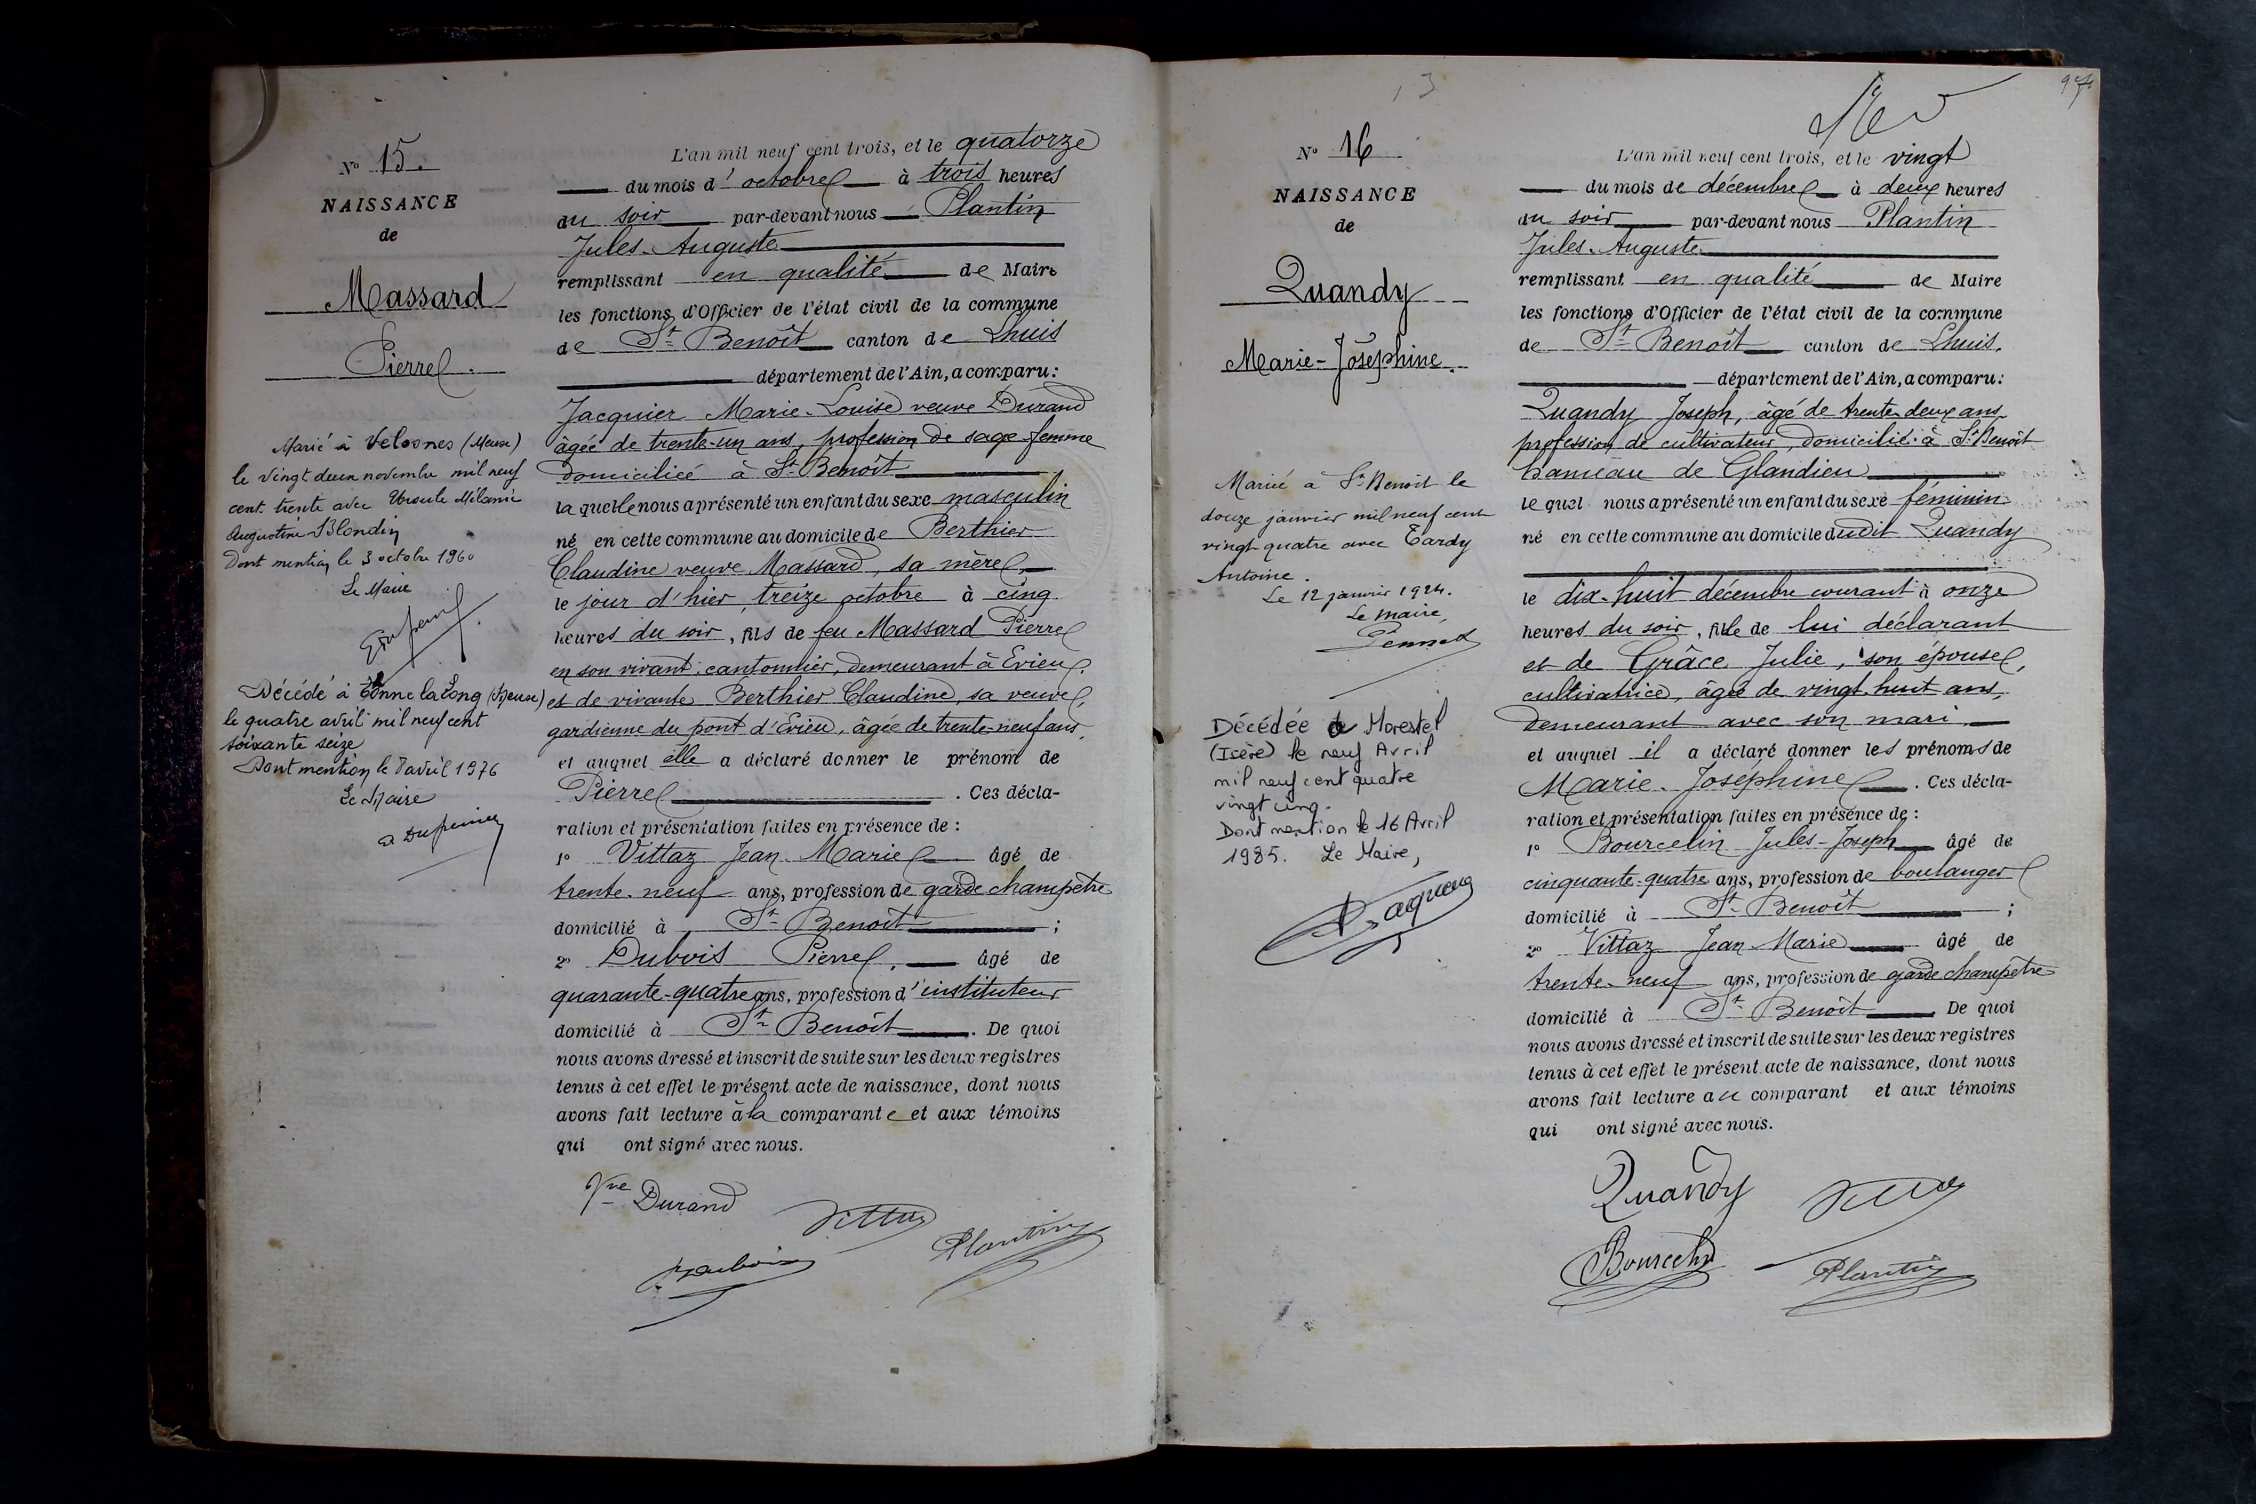 Nº 15.
NAISSANCE
de
Massard
Pierre.
Marié à Velosnes (Meuse)
le vingt deux novembre mil neuf
cent trente avec Ursule Mélanie
Augustine Blondin
Dont mention le 3 octobre 1960
Le Maire
Décédé à Thonne la Long (Meuse)
le quatre avril mil neuf cent
soixante seize
Dont mention le 8 avril 1976
Le Maire
L'an mil neuf cent trois, et le quatorze
du mois d'octobre à trois heures
du soir par-devant nous Plantin
Jules-Auguste
remplissant en qualité de Maire
les fonctions d'Officier de l'état civil de la commune
de St Benoît canton de Lhuis
département de l'Ain, a comparu:
Jacquier Marie-Louise veuve Durand
âgée de trente-un ans, profession de sage-femme
domiciliée à St Benoît
laquelle nous a présenté un enfant du sexe masculin
né en cette commune au domicile de Berthier
Claudine veuve Massard, sa mère
le jour d'hier, treize octobre à cinq
heures du soir, fils de feu Massard Pierre
en son vivant cantonnier, demeurant à Evieu,
et de vivante Berthier Claudine, sa veuve,
gardienne du pont d'Evieu, âgée de trente-neuf ans,
et auquel elle a déclaré donner le prénom de
Pierre. Ces décla-
ration et présentation faites en présence de :
1º Vittaz Jean-Marie âgé de
trente-neuf ans, profession de garde champêtre
domicilié à St Benoît ;
2º Dubois Pierre, âgé de
quarante-quatre ans, profession d'instituteur
domicilié à St Benoît. De quoi
nous avons dressé et inscrit de suite sur les deux registres
tenus à cet effet le présent acte de naissance, dont nous
avons fait lecture à la comparante et aux témoins
qui ont signé avec nous.
Vve Durand
Vittaz
Dubois
Plantin
13
97
Nº 16
NAISSANCE
de
Quandy
Marie-Joséphine.
Mariée à St Benoit le
douze janvier mil neuf cent
vingt-quatre avec Tardy
Antoine.
Le 12 janvier 1924.
Le maire,
Décédée à Morestel
(Isère) le neuf Avril
mil neuf cent quatre
vingt cinq.
Dont mention le 16 Avril
1985. Le Maire,
L'an mil neuf cent trois, et le vingt
du mois de décembre à deux heures
du soir par-devant nous Plantin
Jules-Auguste
remplissant en qualité de Maire
les fonctions d'Officier de l'état civil de la commune
de St Benoît canton de Lhuis.
département de l'Ain, a comparu:
Quandy Joseph, âgé de trente-deux ans,
profession de cultivateur, domicilié à St Benoît
hameau de Glandieu
lequel nous a présenté un enfant du sexe féminin
né en cette commune au domicile dudit Quandy
le dix-huit décembre courant à onze
heures du soir, fille de lui déclarant
et de Grâce Julie, son épouse,
cultivatrice, âgée de vingt-huit ans,
demeurant avec son mari
et auquel il a déclaré donner les prénoms de
Marie-Joséphine. Ces décla-
ration et présentation faites en présence de :
1º Bourcelin Jules-Joseph âgé de
cinquante-quatre ans, profession de boulanger
domicilié à St Benoît ;
2º Vittaz Jean-Marie âgé de
trente-neuf ans, profession de garde champêtre
domicilié à St Benoît. De quoi
nous avons dressé et inscrit de suite sur les deux registres
tenus à cet effet le présent acte de naissance, dont nous
avons fait lecture au comparant et aux témoins
qui ont signé avec nous.
Quandy
Bourcelin
Plantin